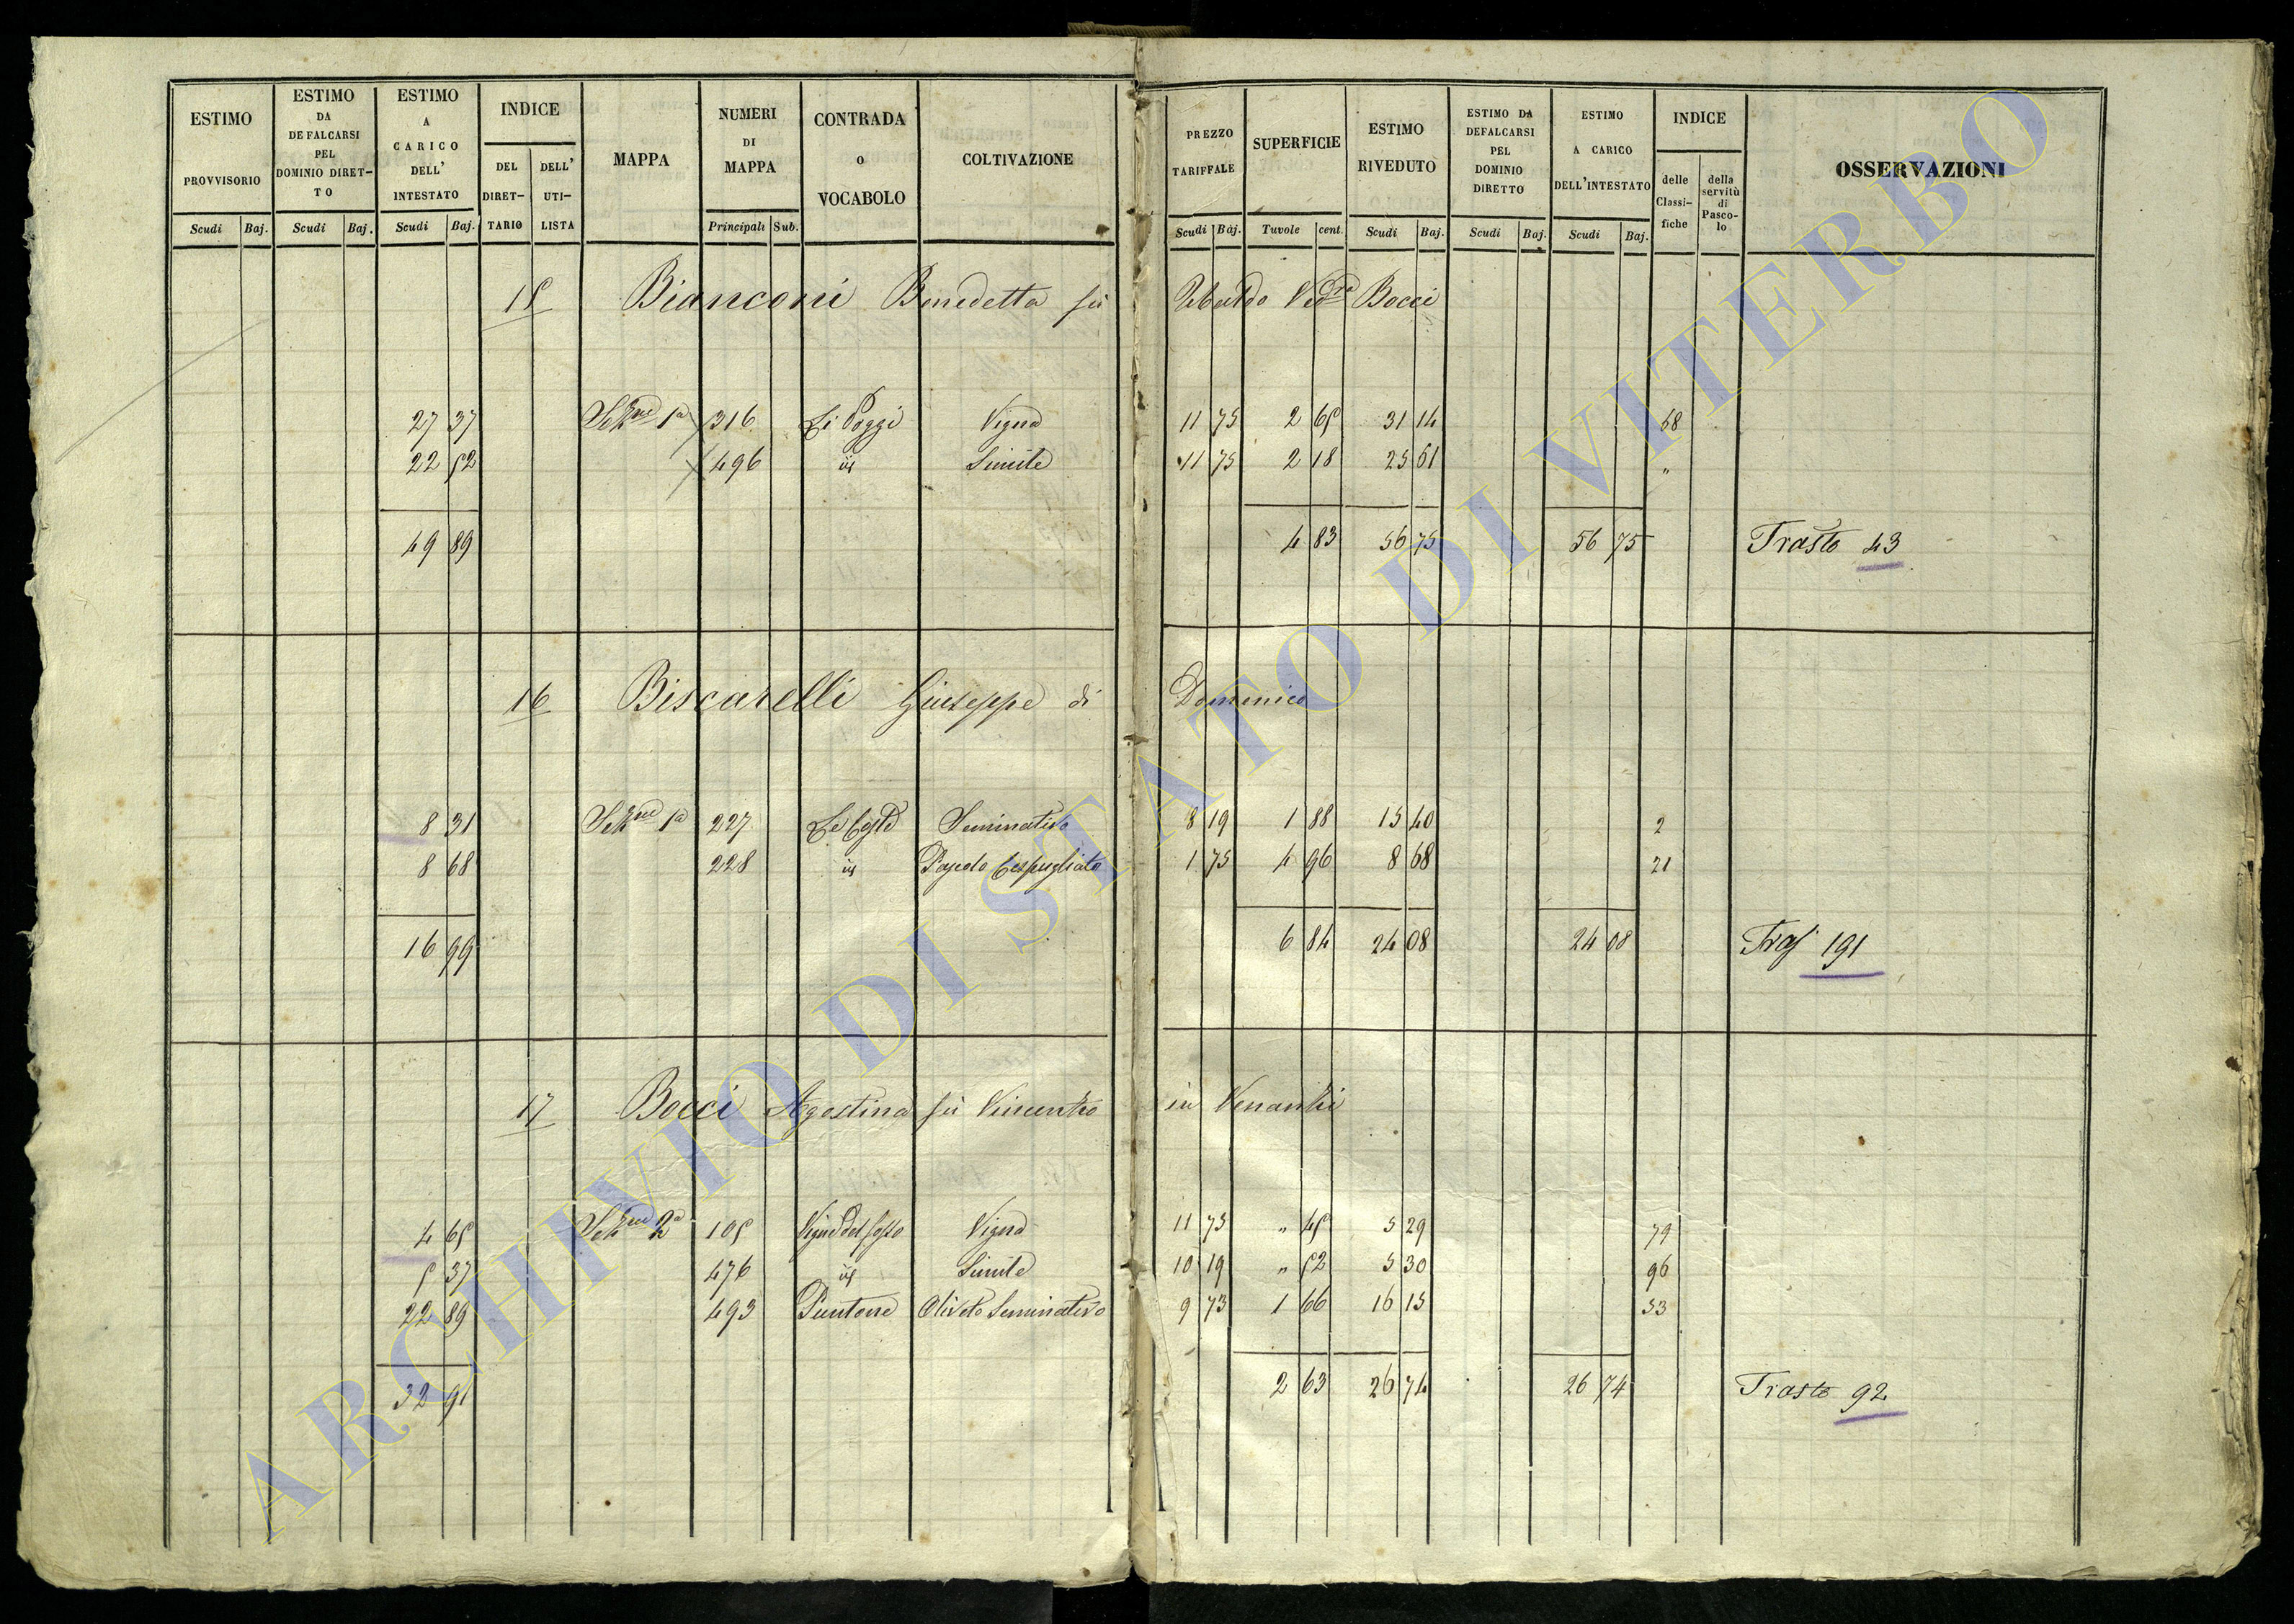 ESTIMO PROVVISORIO | ESTIMO DA DEFALCARSI PEL DOMINIO DIRETTO | ESTIMO A CARICO DELL' INTESTATO | INDICE DEL DIRETTARIO | DELL' UTILISTA | MAPPA | NUMERI DI MAPPA | CONTRADA o VOCABOLO | COLTIVAZIONE | PREZZO TARIFFALE | SUPERFICIE | ESTIMO RIVEDUTO | ESTIMO DA DEFALCARSI PEL DOMINIO DIRETTO | ESTIMO A CARICO DELL'INTESTATO | INDICE delle Classifiche | della servitù di Pascolo | OSSERVAZIONI
Scudi Baj. Scudi Baj. Scudi Baj. Principali Sub. Scudi Baj. Tavole cent. Scudi Baj. Scudi Baj. Scudi Baj.
15 Bianconi Benedetta fu Ubaldo Ved.re Bocci
27 37 Sezne 1a 316 Li Poggi Vigna 11 75 2 65 31 14 68
22 52 496 id Simile 11 75 2 18 25 61 "
49 89 4 83 56 75 56 75 Trasto 43
16 Biscarelli Giuseppe di Domenico
8 31 Sezne 1a 227 Le Coste Seminativo 8 19 1 88 15 40 2
8 68 228 id Pascolo Cespugliato 1 75 4 96 8 68 21
16 99 6 84 24 08 24 08 Tras 191
17 Bocci Agostina fu Vincenzo in Venanzi
4 65 Sezne 2a 105 Vigne del Fosso Vigna 11 75 " 45 5 29 79
5 37 476 id Simile 10 19 " 52 5 30 96
22 89 493 Puntone Olivato Seminativo 9 73 1 66 16 15 53
32 91 2 63 26 74 26 74 Trasto 92
ARCHIVIO DI STATO DI VITERBO